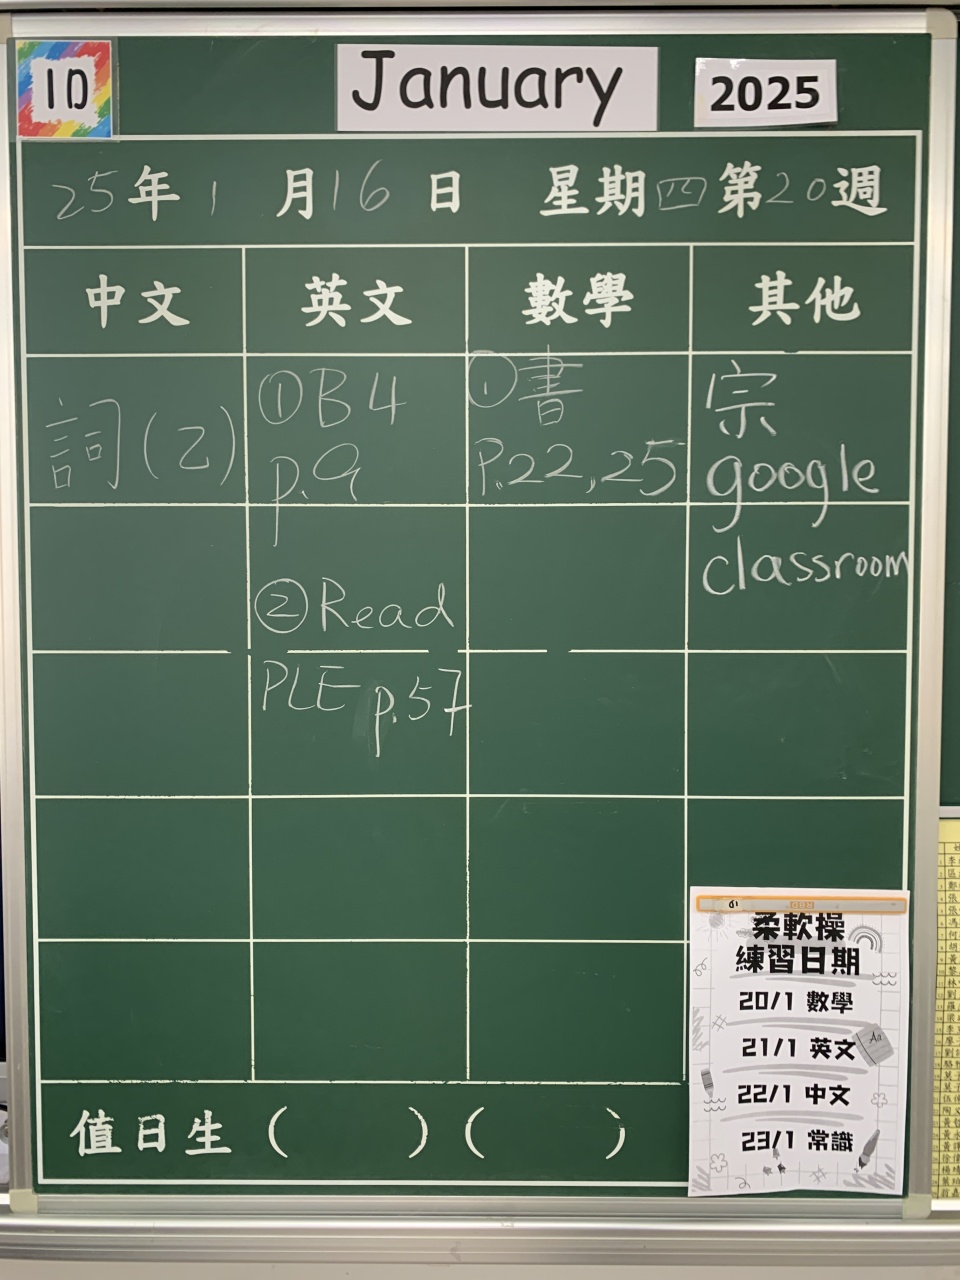 1D
January
2025
25年1月16日 星期四第20週
中文
英文
數學
其他
詞(乙)
①B4
p.9
②Read
PLE p.57
①書
P.22,25
宗
google
classroom
值日生( )( )
柔軟操
練習日期
20/1 數學
21/1 英文
22/1 中文
23/1 常識